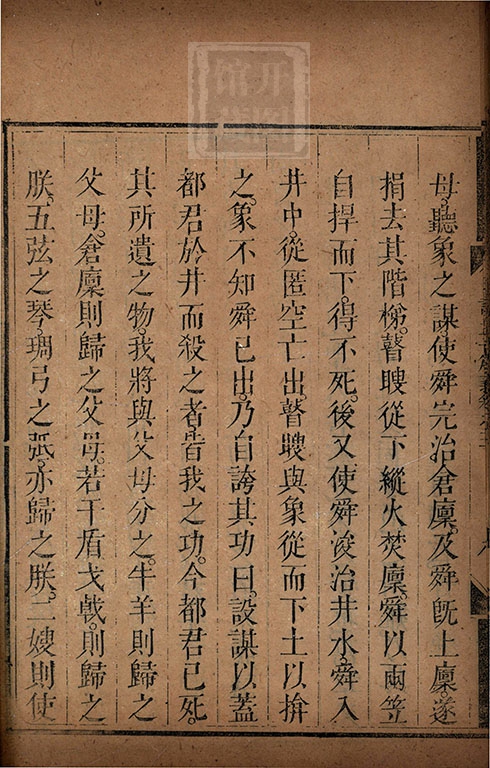 母。聽象之謀。使舜完治倉廩。及舜旣上廩。遂
捐去其階梯。瞽瞍從下縱火焚廩。舜以兩笠
自捍而下。得不死。後又使舜浚治井水。舜入
井中。從匿空亡出。瞽瞍與象從而下土以揜
之。象不知舜已出。乃自誇其功曰。設謀以蓋
都君於井而殺之者。皆我之功。今都君已死。
其所遺之物。我將與父母分之。牛羊則歸之
父母。倉廩則歸之父母。若干盾戈戟。則歸之
朕。五弦之琴。琱弓之弤。亦歸之朕。二嫂則使